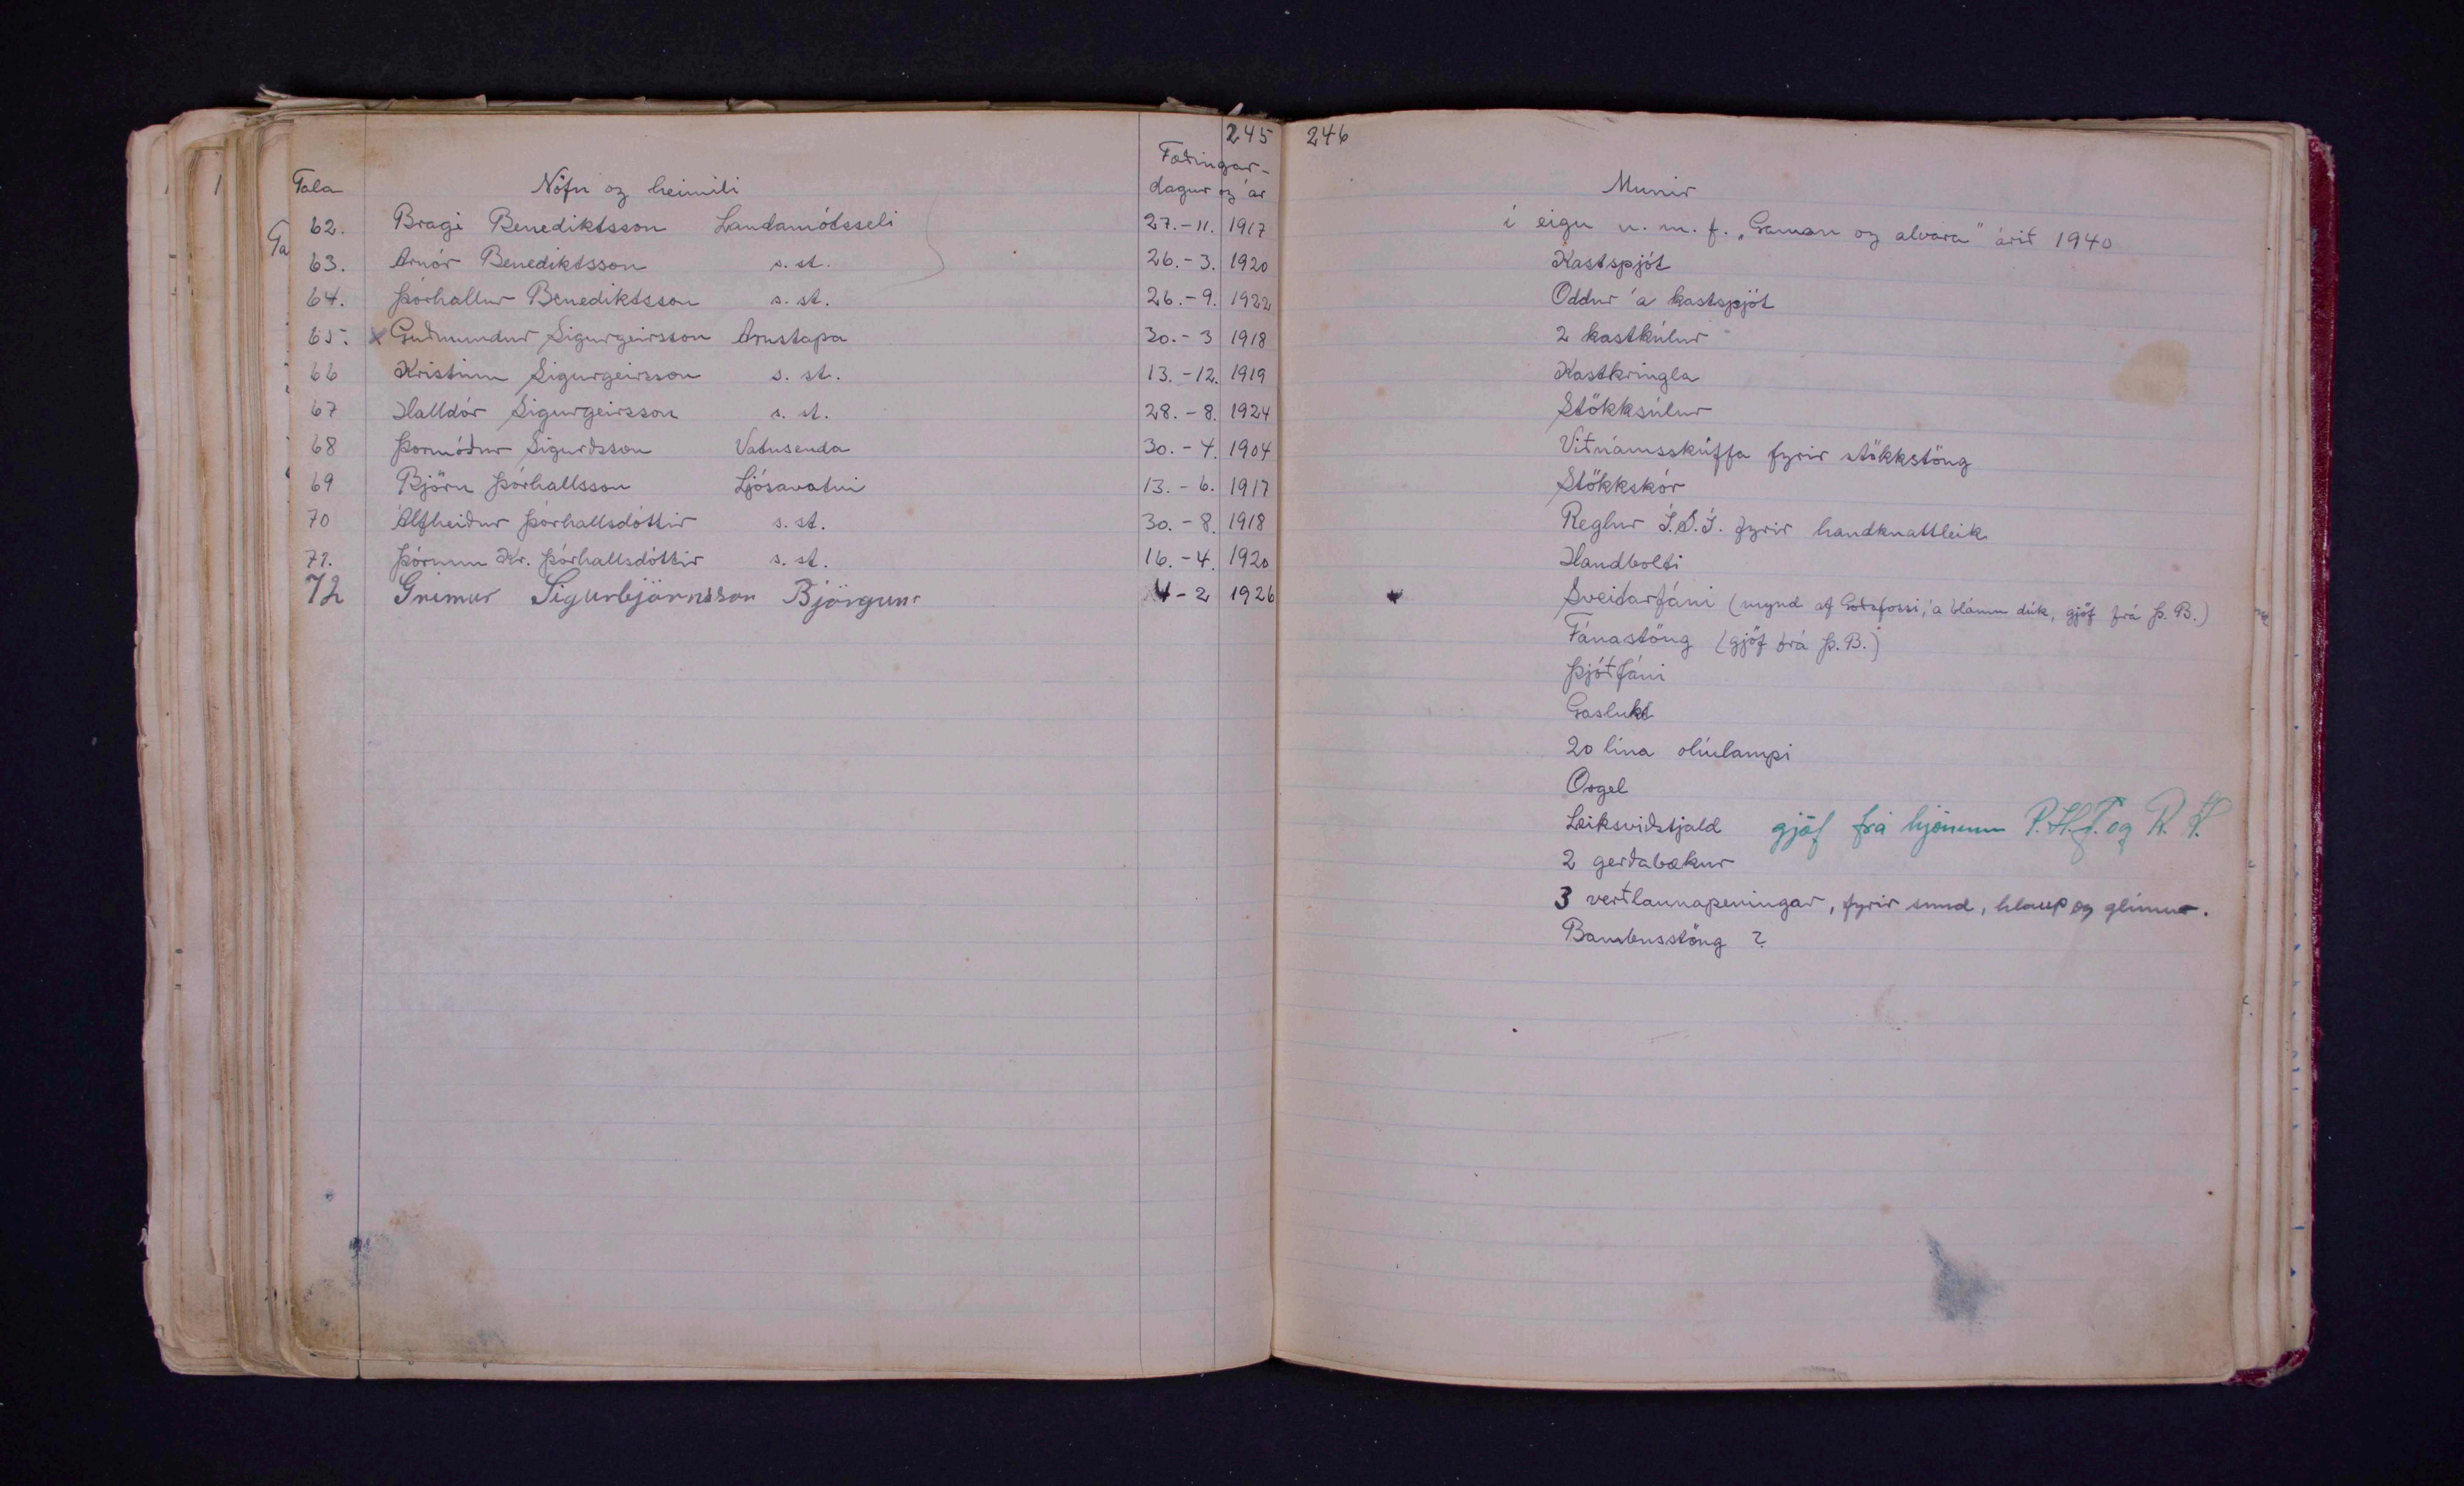 245
Fæðingar-
Tala Nöfn og heimili dagur og ár
62. Bragi Benediktsson Landamótsseli 27.-11. 1917
63. Arnór Benediktsson s. st. 26.-3. 1920
64. Þórhallur Benediktsson s. st. 26.-9. 1922
65. x Guðmundur Sigurgeirsson Arnstapa 30.-3 1918
66 Kristinn Sigurgeirsson s. st. 13.-12. 1919
67 Halldór Sigurgeirsson s. st. 28.-8. 1924
68 Þormóður Sigurðsson Vatnsenda 30.-4. 1904
69 Björn Þórhallsson Ljósavatni 13.-6. 1917
70 Álfheiður Þórhallsdóttir s. st. 30.-8. 1918
71. Þórunn Kr. Þórhallsdóttir s. st. 16.-4. 1920
72 Grímur Sigurbjörnsson Björgum 4-2 1926
Ta
246
Munir
í eigu u. m. f. „Gaman og alvara" árið 1940
Kastspjót
Oddur á kastspjót
2 kastkúlur
Kastkringla
Stökksúlur
Viðnámsskúffa fyrir stökkstöng
Stökkskór
Reglur Í.S.Í. fyrir handknattleik
Handbolti
Sveitarfáni (mynd af Goðafossi, á bláum dúk, gjöf frá Þ. B.)
Fánastöng (gjöf frá Þ. B.)
Þjóðfáni
Gaslukt
20 lína olíulampi
Orgel
Leiksviðstjald gjöf frá hjónum
2 gerðabækur
3 verðlaunapeningar, fyrir sund, hlaup og glímur.
Bambusstöng ?